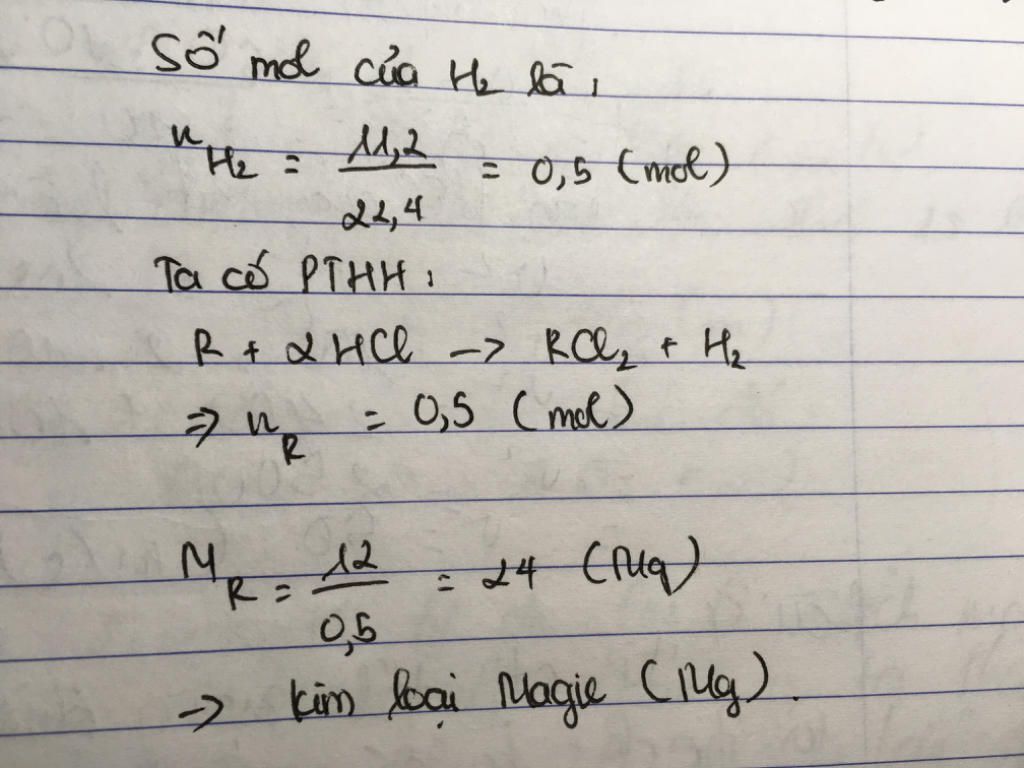 Số mol của H₂ là:
n H₂ = 11,2 / 22,4 = 0,5 (mol)
Ta có PTHH:
R + 2HCl -> RCl₂ + H₂
=> n R = 0,5 (mol)
M R = 12 / 0,5 = 24 (Mg)
-> Kim loại Magie (Mg).